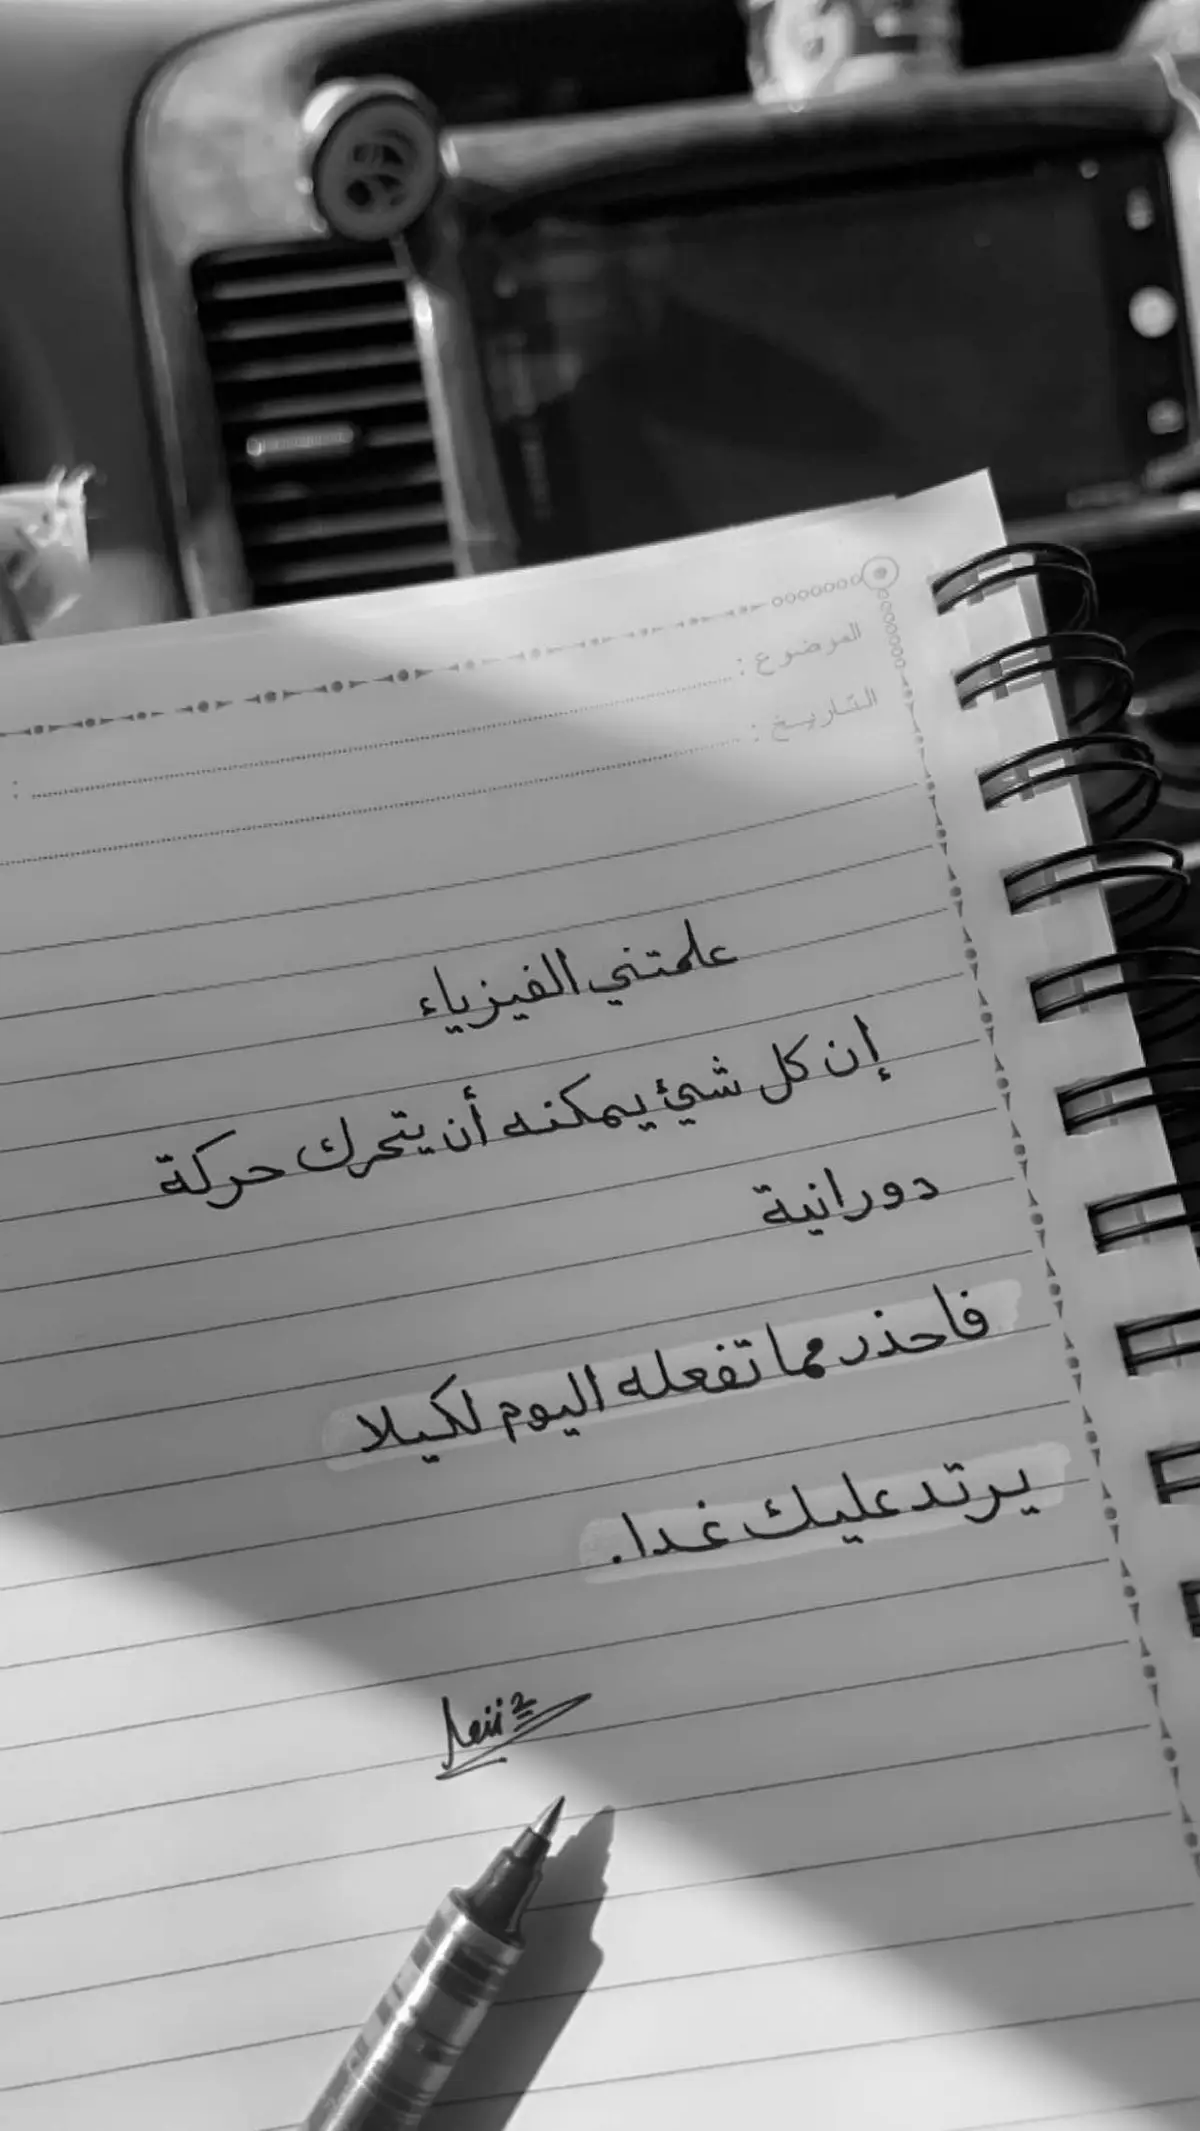 الموضوع :
التاريخ :
علمتني الفيزياء
إن كل شيئ يمكنه أن يتحرك حركة
دورانية
فاحذر مما تفعله اليوم لكيلا
يرتد عليك غدا.